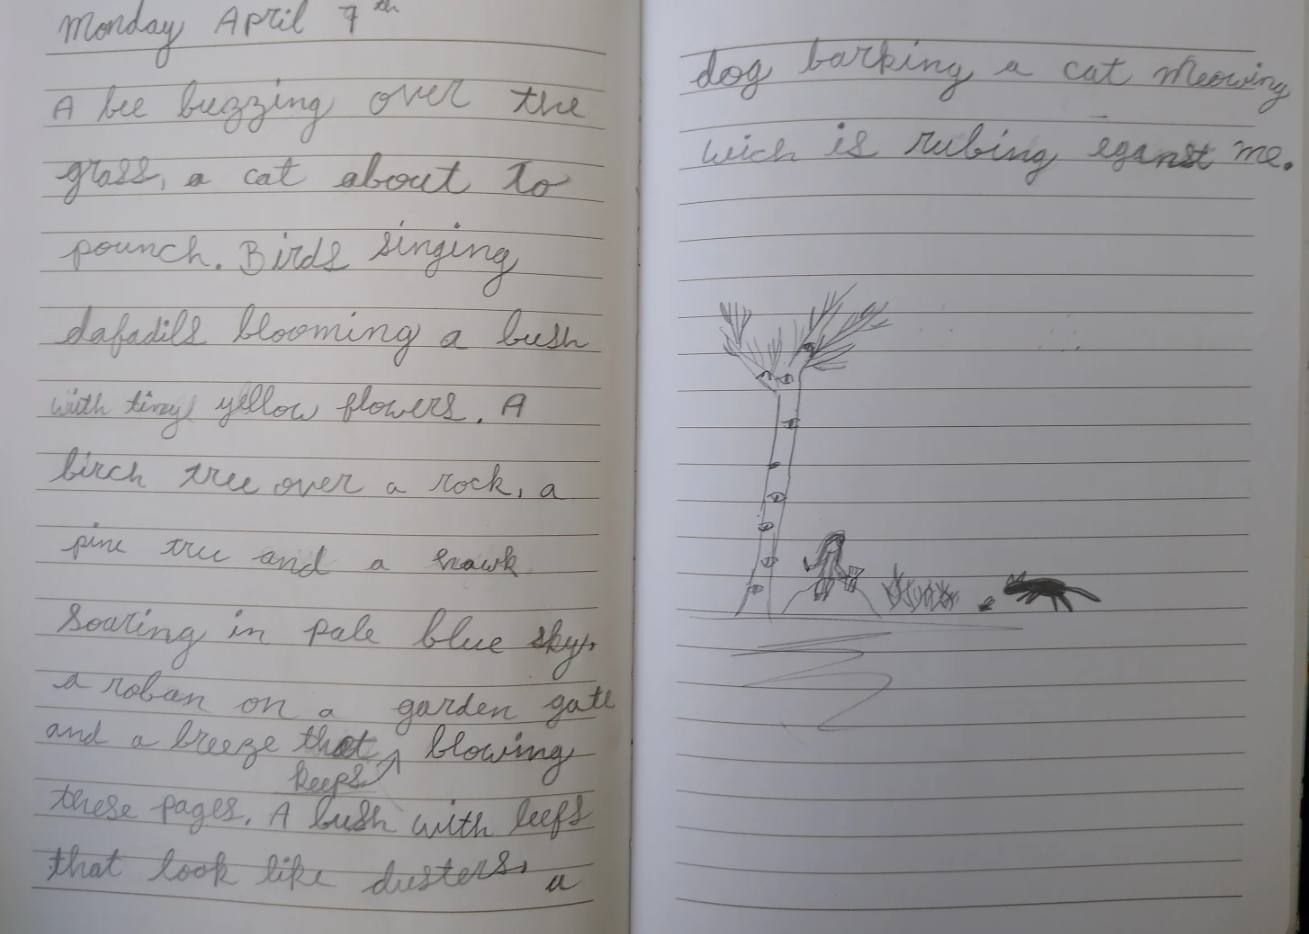 Monday April 7th
A bee buzzing over the
grass, a cat about to
pounch. Birds singing
dafadils blooming a bush
with tiny yellow flowers. A
birch tree over a rock, a
pine tree and a hawk
soaring in pale blue sky,
a roban on a garden gate
and a breeze that keeps blowing
these pages. A bush with leefs
that look like dusters, a
dog barking a cat meowing
wich is rubing eganst me.